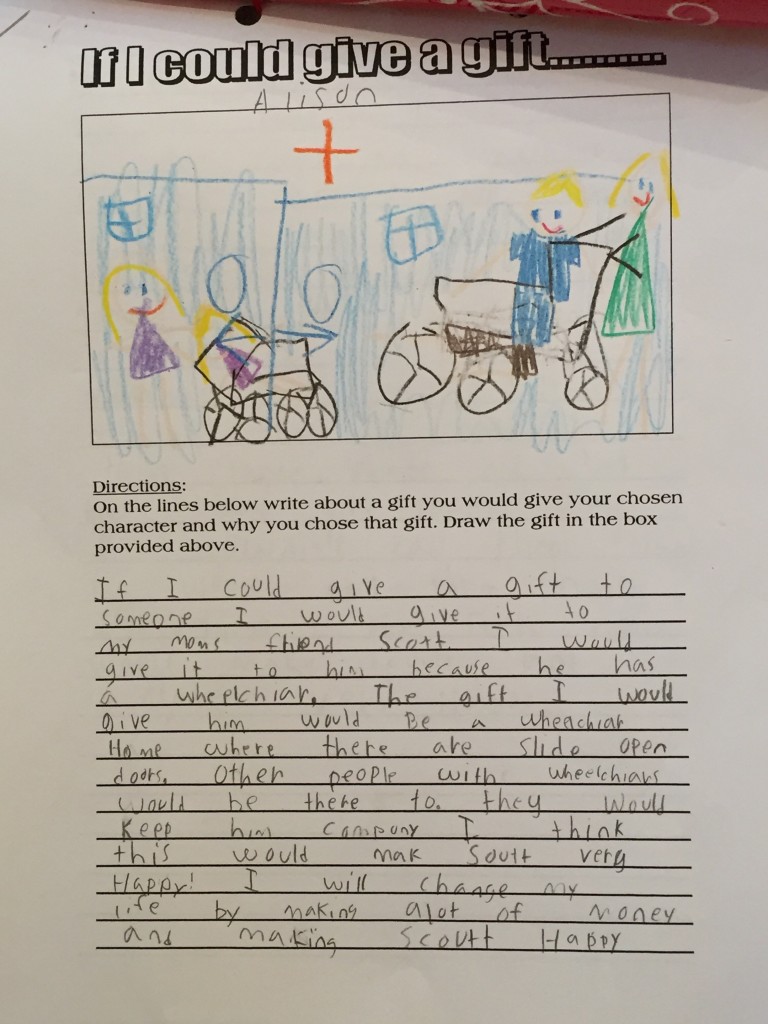 If I could give a gift...........
Alison
Directions:
On the lines below write about a gift you would give your chosen
character and why you chose that gift. Draw the gift in the box
provided above.
If I could give a gift to
someone I would give it to
my moms ftiend Scott. I would
give it to him because he has
a wheelchiar. The gift I would
give him would Be a wheachiar
Home where there are slide open
doors. Other people with wheelchiars
would be there to. they would
keep him company I think
this would mak Soutt very
Happy! I will change my
life by making alot of money
and making Scoutt Happy